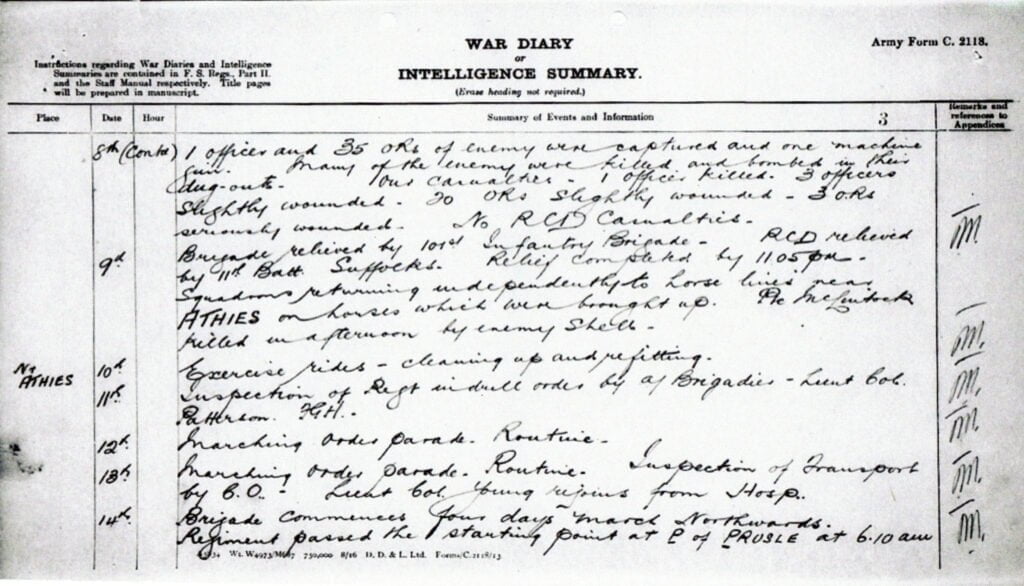 WAR DIARY
or
INTELLIGENCE SUMMARY.
(Erase heading not required.)
Army Form C. 2118.
Instructions regarding War Diaries and Intelligence
Summaries are contained in F. S. Regs., Part II.
and the Staff Manual respectively. Title pages
will be prepared in manuscript.
Place Date Hour Summary of Events and Information 3 Remarks and references to Appendices
8th (Contd) 1 officer and 35 ORs of enemy were captured and one machine
gun. Many of the enemy were killed and bombed in their
dug-outs. Our casualties - 1 officer killed. 3 officers
slightly wounded. 20 ORs slightly wounded - 3 ORs
seriously wounded. No RCD Casualties.
9th Brigade relieved by 101st Infantry Brigade - RCD relieved
by 11th Batt. Suffolks. Relief completed by 11.05 pm.
Squadrons returning independently to horse lines near
ATHIES on horses which were brought up. Pte McLintock
killed in afternoon by enemy shell.
Nr ATHIES 10th Exercise rides - cleaning up and refitting.
11th Inspection of Regt in drill order by a/ Brigadier - Lieut Col.
Patterson. FGH.
12th Marching order parade. Routine.
13th Marching order parade. Routine. Inspection of Transport
by C.O. - Lieut Col. Young rejoins from Hosp.
14th Brigade commences four days march Northwards.
Regiment passed the starting point at P of PRUSLE at 6.10 am
Wt. W4973/M687 750,000 8/16 D. D. & L. Ltd. Forms/C.2118/13